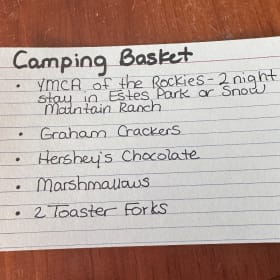 Camping Basket
• YMCA of the Rockies - 2 night
stay in Estes Park or Snow
Mountain Ranch
• Graham Crackers
• Hershey's Chocolate
• Marshmallows
• 2 Toaster Forks